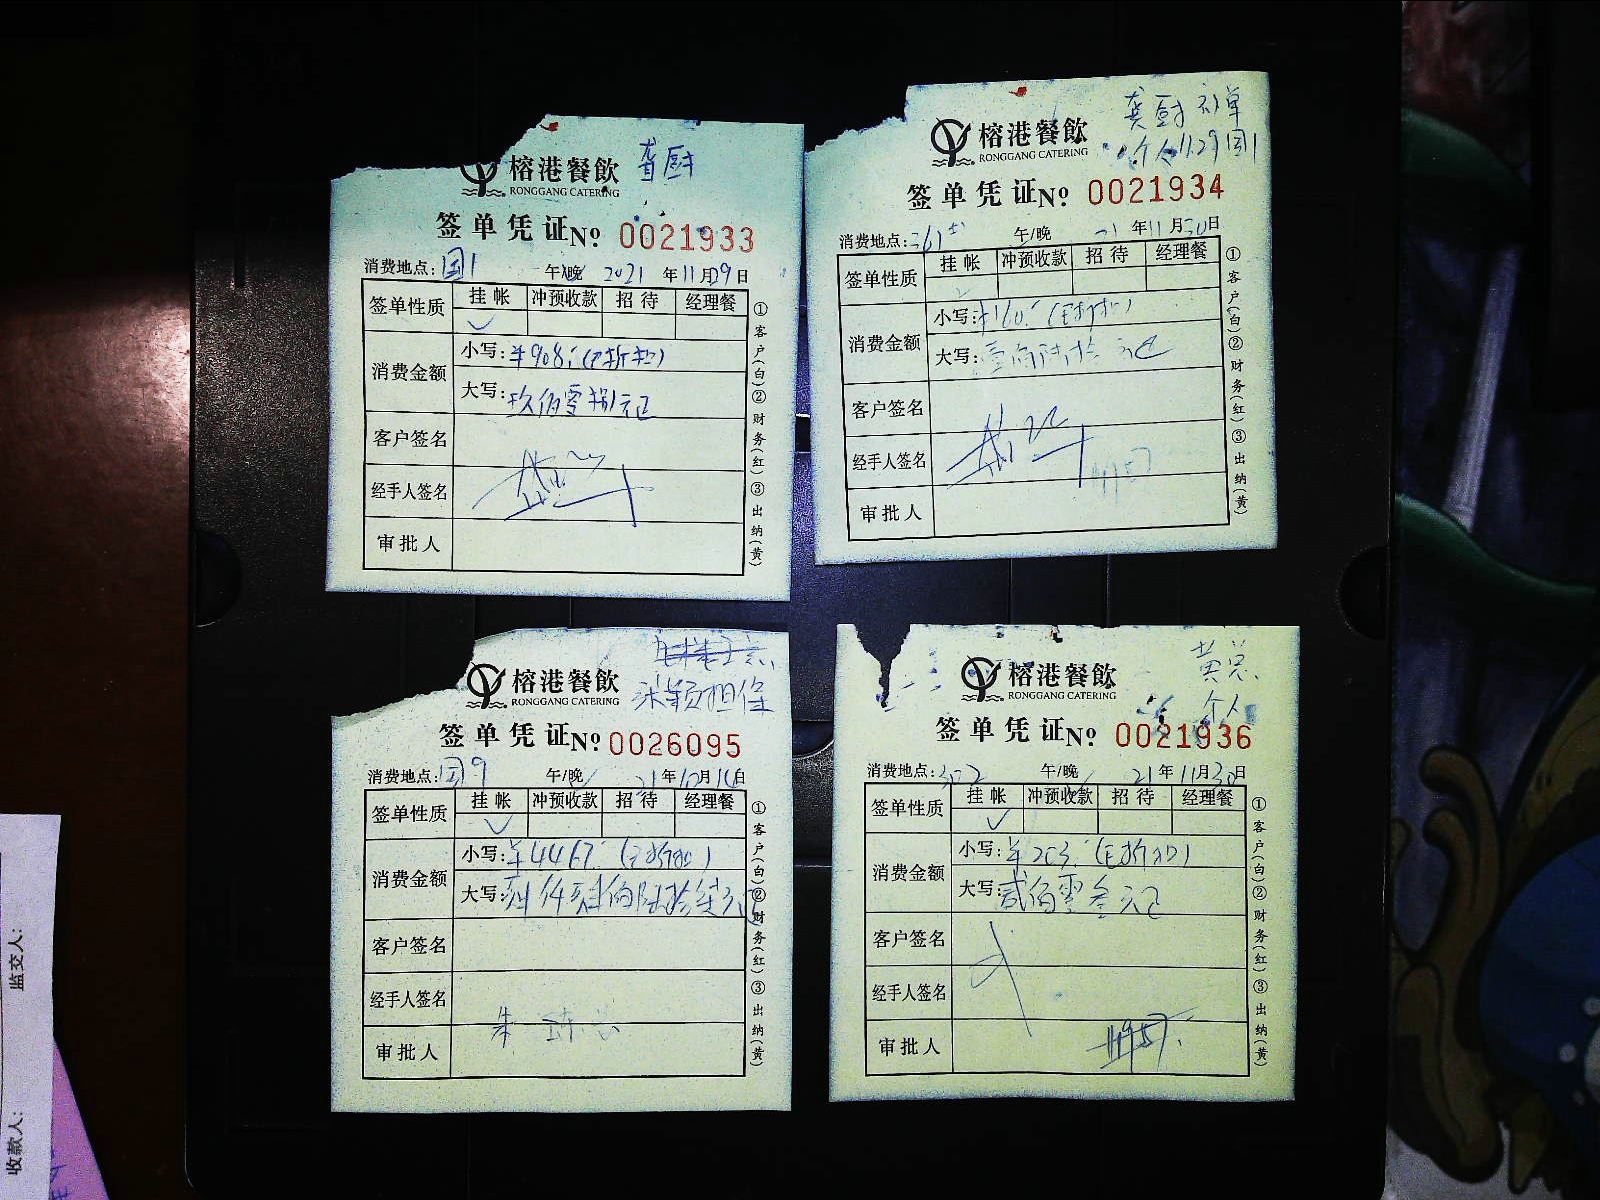 榕港餐飲 龚厨
RONGGANG CATERING
签单凭证 No 0021933
消费地点: 国1 午/晚 2021年11月29日
签单性质 挂帐 冲预收款 招待 经理餐
✓
消费金额 小写: ¥908
大写: 玖佰零捌元正
客户签名
经手人签名
审批人
①客户(白)②财务(红)③出纳(黄)
龚厨 补单
个人 11.29 国1
榕港餐飲
RONGGANG CATERING
签单凭证 No 0021934
消费地点: 午/晚 21年11月30日
签单性质 挂帐 冲预收款 招待 经理餐
✓
消费金额 小写: ¥160
大写: 壹佰陆拾元正
客户签名
经手人签名
审批人
①客户(白)②财务(红)③出纳(黄)
榕港餐飲
担保
RONGGANG CATERING
签单凭证 No 0026095
消费地点: 国9 午/晚 21年
签单性质 挂帐 冲预收款 招待 经理餐
✓
消费金额 小写: ¥4467
大写: 肆仟肆佰陆拾柒元
客户签名
经手人签名
审批人
①客户(白)②财务(红)③出纳(黄)
黄总
个人
榕港餐飲
RONGGANG CATERING
签单凭证 No 0021936
消费地点: 302 午/晚 21年11月30日
签单性质 挂帐 冲预收款 招待 经理餐
✓
消费金额 小写: ¥203
大写: 贰佰零叁元正
客户签名
经手人签名
审批人
①客户(白)②财务(红)③出纳(黄)
监交人:
收款人: